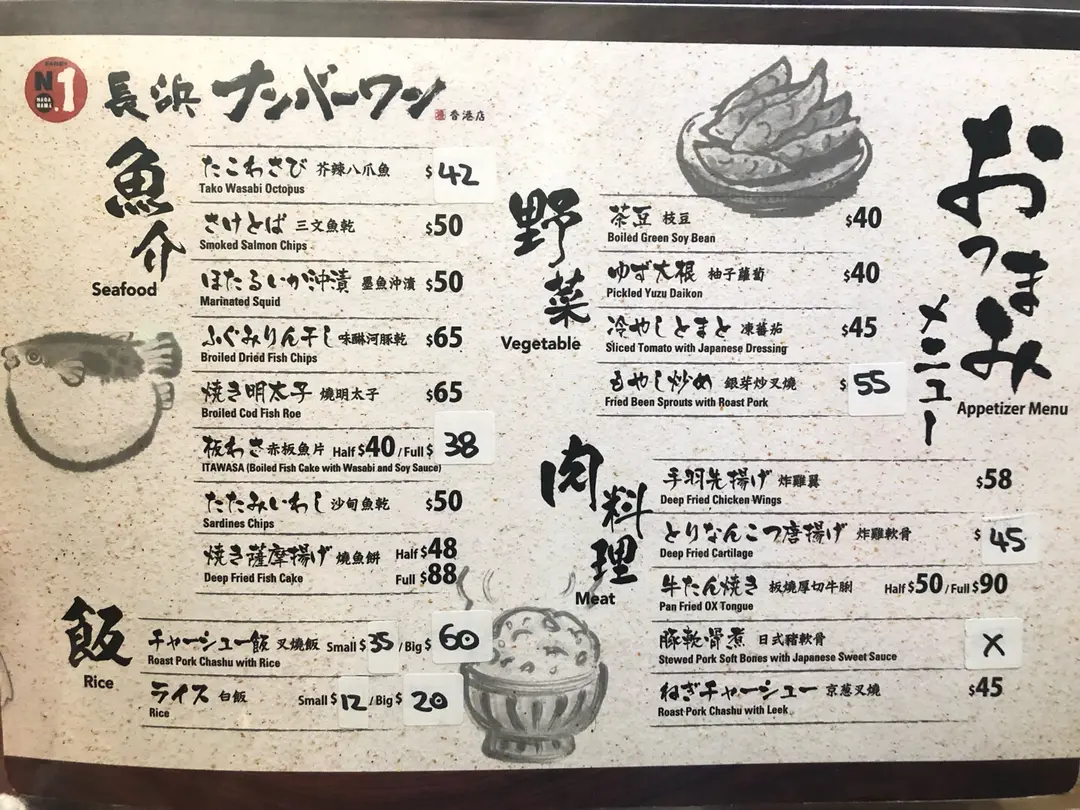 RAMEN
No.1
NAGA
HAMA
長浜 ナンバーワン
香港店
おつまみ
メニュー
Appetizer Menu
魚介
Seafood
たこわさび 芥辣八爪魚 $42
Tako Wasabi Octopus
さけとば 三文魚乾 $50
Smoked Salmon Chips
ほたるいか沖漬 墨魚沖漬 $50
Marinated Squid
ふぐみりん干し 味醂河豚乾 $65
Broiled Dried Fish Chips
焼き明太子 燒明太子 $65
Broiled Cod Fish Roe
板わさ 赤板魚片 Half $40 / Full $38
ITAWASA (Boiled Fish Cake with Wasabi and Soy Sauce)
たたみいわし 沙甸魚乾 $50
Sardines Chips
焼き薩摩揚げ 燒魚餅 Half $48
Deep Fried Fish Cake Full $88
飯
Rice
チャーシュー飯 叉燒飯 Small $35 / Big $60
Roast Pork Chashu with Rice
ライス 白飯 Small $12 / Big $20
Rice
野菜
Vegetable
茶豆 枝豆 $40
Boiled Green Soy Bean
ゆず大根 柚子蘿蔔 $40
Pickled Yuzu Daikon
冷やしとまと 凍蕃茄 $45
Sliced Tomato with Japanese Dressing
もやし炒め 銀芽炒叉燒 $55
Fried Been Sprouts with Roast Pork
肉料理
Meat
手羽先揚げ 炸雞翼 $58
Deep Fried Chicken Wings
とりなんこつ唐揚げ 炸雞軟骨 $45
Deep Fried Cartilage
牛たん焼き 板燒厚切牛脷 Half $50 / Full $90
Pan Fried OX Tongue
豚軟骨煮 日式豬軟骨 X
Stewed Pork Soft Bones with Japanese Sweet Sauce
ねぎチャーシュー 京葱叉燒 $45
Roast Pork Chashu with Leek